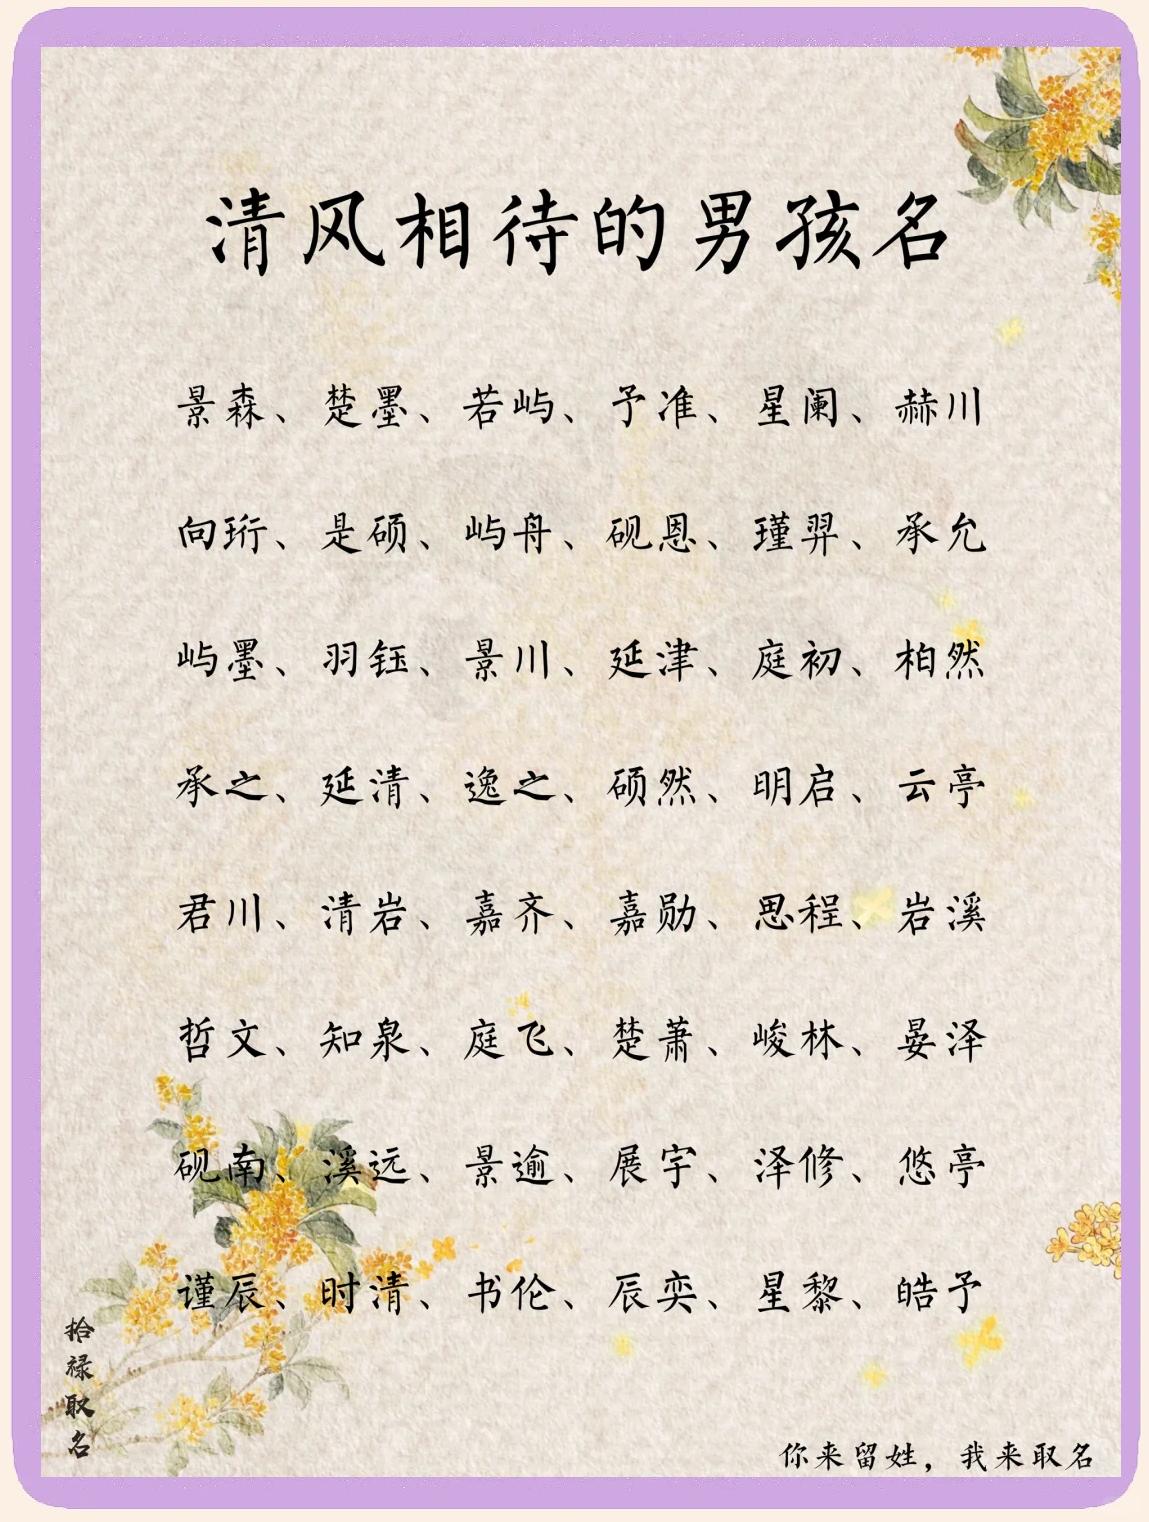 清风相待的男孩名
景森、楚墨、若屿、予准、星阑、赫川
向珩、是硕、屿舟、砚恩、瑾羿、承允
屿墨、羽钰、景川、延津、庭初、柏然
承之、延清、逸之、硕然、明启、云亭
君川、清岩、嘉齐、嘉勋、思程、岩溪
哲文、知泉、庭飞、楚萧、峻林、晏泽
砚南、溪远、景逾、展宇、泽修、悠亭
谨辰、时清、书伦、辰奕、星黎、皓予
拾禄取名
你来留姓，我来取名